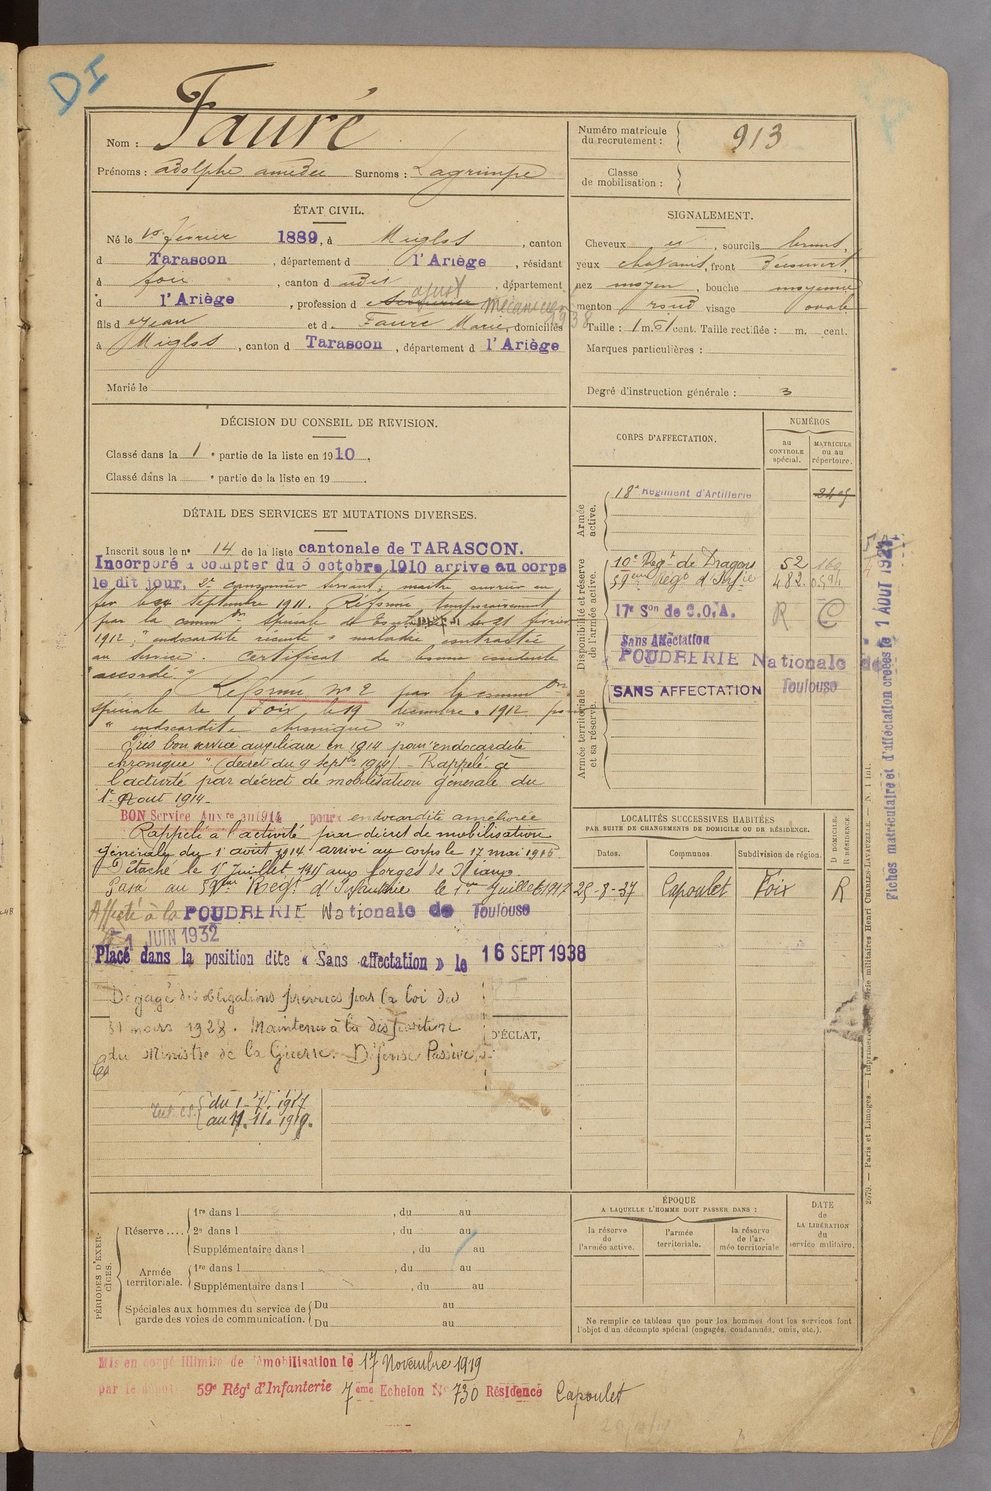 DI
Nom : Fauré
Prénoms : adolphe amédée Surnoms : Lagrimpe
Numéro matricule du recrutement : 913
Classe de mobilisation :
ÉTAT CIVIL.
Né le février 1889, à Miglos, canton
d Tarascon, département d l'Ariège, résidant
à foix, canton d udit, département
d l'Ariège, profession d ajust mécanicien
fils d ejean et d Faure Marie, domiciliés
à Miglos, canton d Tarascon, département d l'Ariège
Marié le
SIGNALEMENT.
Cheveux et, sourcils bruns,
yeux chatains, front découvert,
nez moyen, bouche moyenne
menton rond visage ovale
Taille : 1 m. 61 cent. Taille rectifiée : m. cent.
Marques particulières :
Degré d'instruction générale : 3
DÉCISION DU CONSEIL DE REVISION.
Classé dans la 1e partie de la liste en 1910.
Classé dans la e partie de la liste en 19 .
DÉTAIL DES SERVICES ET MUTATIONS DIVERSES.
Inscrit sous le n° 14 de la liste cantonale de TARASCON.
Incorporé à compter du 5 octobre 1910 arrive au corps
le dit jour, 2e canonnier servant, maitre ouvrier en
fer le 24 septembre 1911. Réformé temporairement
par la comm on spéciale de le 21 février
1912, "endocardite récente" maladie contractée
au service. Certificat de bonne conduite
accordé.
Réformé n° 2 par la comm on
spéciale de Foix le 19 décembre 1912 pour
"endocardite chronique"
Pris bon service auxiliaire en 1914 pour "endocardite
chronique" (décret du 9 sept bre 1914) - Rappelé à
l'activité par décret de mobilisation générale du
1er Aout 1914.
BON Service Aux re en 1914 pour endocardite améliorée
Rappelé à l'activité par décret de mobilisation
générale du 1er août 1914 arrivé au corps le 17 mai 1915
Détaché le 1er Juillet 1915 aux forges de
Passé au 59ème Regt d'Infanterie le 1er Juillet 1917
Affecté à la POUDRERIE Nationale de Toulouse
1 JUIN 1932
Placé dans la position dite « Sans affectation » le 16 SEPT 1938
Dégagé des obligations prévues par la loi du
31 mars 1928. Maintenu à la disposition
du Ministre de la Guerre. Défense Passive.
D'ÉCLAT,
du 1-7-1917
au 11.11.1919.
CORPS D'AFFECTATION.
NUMÉROS
au CONTROLE spécial.
MATRICULE ou au répertoire.
Armée active.
18e Régiment d'Artillerie
Disponibilité et réserve de l'armée active.
10e Regt de Dragons 52 169
59eme Regt d'Inf ie 482
17e Son de C.O.A. R C
Sans Affectation
POUDRERIE Nationale de Toulouse
Armée territoriale et sa réserve.
SANS AFFECTATION
Fiches matriculaire et d'affectation créées le 1 AOUT 1927
LOCALITÉS SUCCESSIVES HABITÉES
PAR SUITE DE CHANGEMENTS DE DOMICILE OU DE RÉSIDENCE.
Dates. Communes. Subdivision de région. D DOMICILE. R RÉSIDENCE.
25-3-27 Capoulet Foix R
PÉRIODES D'EXERCICES.
Réserve ....
1re dans l , du au
2e dans l , du au
Supplémentaire dans l , du au
Armée territoriale.
1re dans l , du au
Supplémentaire dans l , du au
Spéciales aux hommes du service de garde des voies de communication.
Du au
Du au
ÉPOQUE
A LAQUELLE L'HOMME DOIT PASSER DANS :
la réserve de l'armée active.
l'armée territoriale.
la réserve de l'armée territoriale
DATE de LA LIBÉRATION du service militaire.
Ne remplir ce tableau que pour les hommes dont les services font
l'objet d'un décompte spécial (engagés, condamnés, omis, etc.).
Mis en congé illimité de démobilisation le 17 Novembre 1919
par le dépôt 59e Régt d'Infanterie 7ème Echelon N° 730 Résidence Capoulet